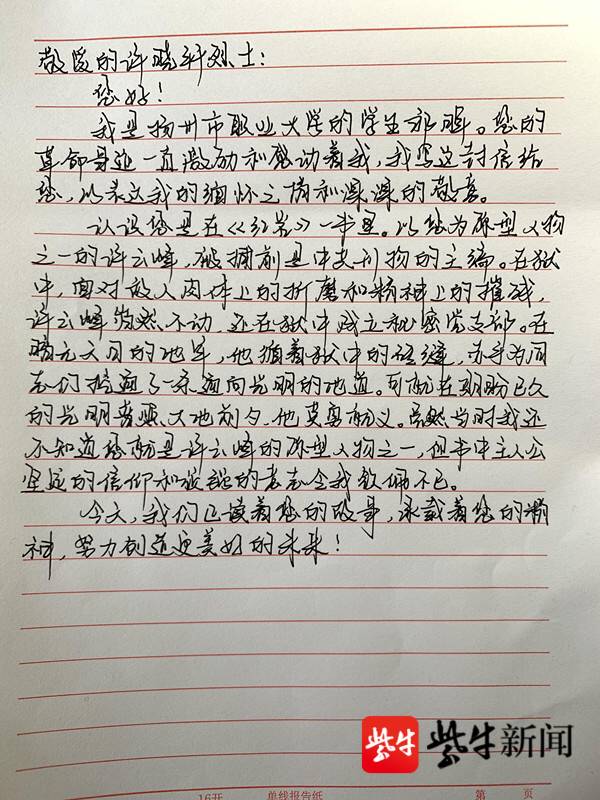 敬爱的许晓轩烈士：
您好！
我是扬州市职业大学的学生祁晖。您的
革命事迹一直激励和感动着我，我写这封信给
您，以表达我的缅怀之情和深深的敬意。
认识您是在《红岩》一书里。以您为原型人物
之一的许云峰，被捕前是中共刊物的主编。在狱
中，面对敌人肉体上的折磨和精神上的摧残，
许云峰岿然不动，还在狱中成立秘密党支部。在
暗无天日的地牢，他循着狱中的砖缝，赤手为同
志们挖通了一条通向光明的地道。可就在期盼已久
的光明普照大地前夕，他英勇就义。虽然当时我还
不知道您就是许云峰的原型人物之一，但书中主人公
坚定的信仰和顽强的意志令我敬佩不已。
今天，我们正读着您的故事，承载着您的精
神，努力创造更美好的未来！
紫牛 紫牛新闻
16开 单线报告纸 第 页